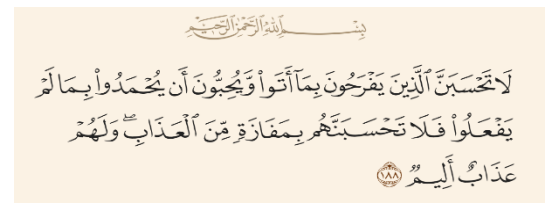 بِسْمِ ٱللَّهِ ٱلرَّحْمَٰنِ ٱلرَّحِيمِ
لَا تَحْسَبَنَّ ٱلَّذِينَ يَفْرَحُونَ بِمَآ أَتَوا۟ وَّيُحِبُّونَ أَن يُحْمَدُوا۟ بِمَا لَمْ
يَفْعَلُوا۟ فَلَا تَحْسَبَنَّهُم بِمَفَازَةٍ مِّنَ ٱلْعَذَابِ ۖ وَلَهُمْ
عَذَابٌ أَلِيمٌ ١٨٨